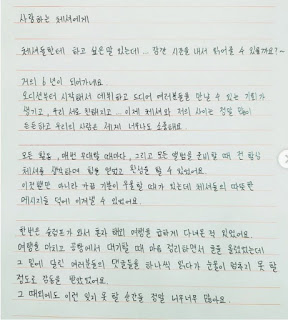 사랑하는 체셔에게
체셔들한테 하고 싶은말 있는데... 잠깐 시간을 내서 읽어줄 수 있을까요?~
거의 6년이 되어가네요
오디션부터 시작해서 데뷔하고 드디어 여러분들을 만날 수 있는 기회가
생기고, 우리 서로 친해지고... 이제 체셔와 저희 사이는 정말 많이
든든하고 우리의 사랑은 제게 너무나도 소중해요.
모든 활동, 매번 무대할 때마다, 그리고 모든 앨범을 준비할 때 전 항상
체셔를 생각하며 힘을 얻었고 완성을 할 수 있었어요.
이것뿐만 아니라 가끔 기분이 우울할 때가 있는데 체셔들의 따뜻한
메시지들 덕에 이겨낼 수 있었어요.
한번은 슬럼프가 와서 혼자 해외 여행을 급하게 다녀온 적 있었어요.
여행을 마치고 공항에서 대기할 때 마음 정리하면서 글을 올렸었는데
그 밑에 달린 여러분들의 댓글들을 하나씩 읽다가 눈물이 멈추지 못 할
정도로 감동을 받았었어요.
그 때 외에도 이런 잊지 못 할 순간들 정말 너무너무 많아요.